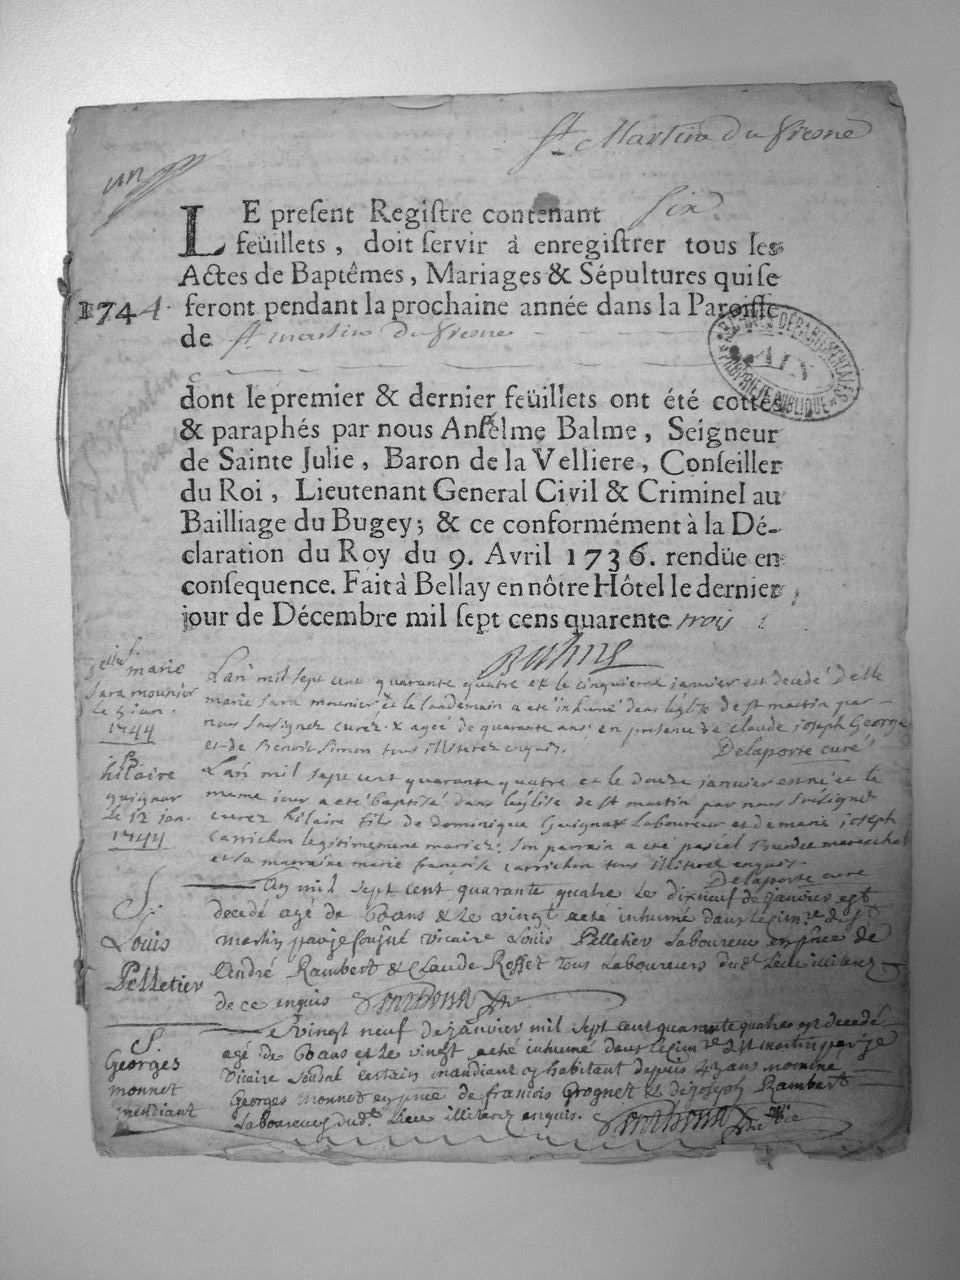 St. Martin du fresne
un
LE preſent Regiſtre contenant six
feüillets, doit ſervir à enregiſtrer tous les
Actes de Baptêmes, Mariages & Sépultures qui ſe
1744. feront pendant la prochaine année dans la Paroiſſe
de St. martin du fresne
ARCHIVES DÉPARTEMENTALES
AIN
PROPRIÉTÉ PUBLIQUE
dont le premier & dernier feüillets ont été cottés
& paraphés par nous Anſelme Balme, Seigneur
de Sainte Julie, Baron de la Velliere, Conſeiller
du Roi, Lieutenant General Civil & Criminel au
Bailliage du Bugey; & ce conformément à la Dé-
claration du Roy du 9. Avril 1736. rendüe en
conſequence. Fait à Bellay en nôtre Hôtel le dernier
jour de Décembre mil ſept cens quarente trois
S.
delle marie
sara mounier
le 5 janr.
1744
L'an mil sept cent quarante quatre et le cinquieme janvier est decedé delle
marie sara mounier et le landemain a eté inhumé dans l'eglise de st martin par
nous soussignez curez agée de quarante ans en presence de claude joseph George
et de Benoit Simon tous illiterez enquis. Delaporte curé
B.
hilaire
guignar
le 12 jan.
1744
L'an mil sept cent quarante quatre et le douze janvier est né et le
meme jour a eté baptisé dans l'eglise de st martin par nous sousigné
curez hilaire fils de dominique Guignar Laboureur et de marie joseph
Carrichon legitimement mariez; son parrain a eté Burdet mareschal
et sa marraine marie françoise carrichon tous illiterez enquis.
Delaporte curé
S.
Louis
Pelletier
L'an mil sept cent quarante quatre le dixneuf de janvier est
decedé agé de 60 ans & le vingt a eté inhumé dans le cimre de st
martin par je sousné vicaire Louis Pelletier Laboureur en pnce de
André Rambert & Claude Rosset tous Laboureurs dud. lieu
de ce enquis
S.
Georges
monnet
mendiant
Le vingt neuf de janvier mil sept cent quarante quatre est decedé
agé de 60 ans et le vingt a eté inhumé dans le cimre de st martin par je
vicaire sousné certain mandiant cy habitant depuis 4 ans nommé
Georges monnet en pnce de francois Grognet & de joseph Rambert
Laboureurs dud. Lieu illiterez enquis. vic